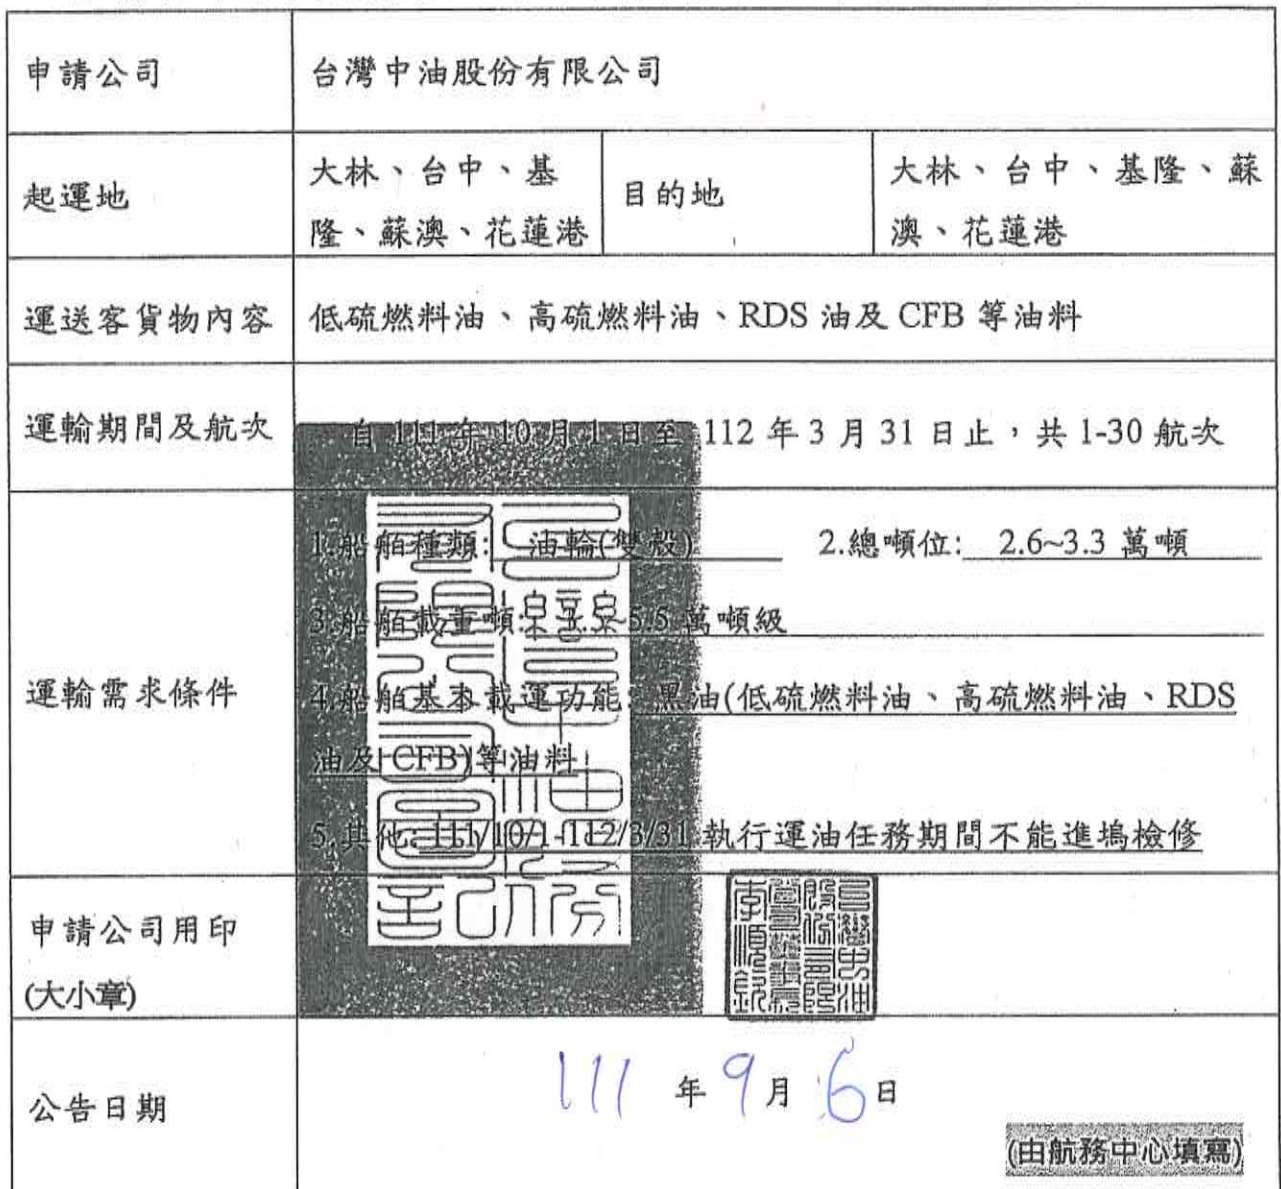 申請公司
台灣中油股份有限公司
起運地
大林、台中、基
隆、蘇澳、花蓮港
目的地
大林、台中、基隆、蘇
澳、花蓮港
運送客貨物內容
低硫燃料油、高硫燃料油、RDS 油及 CFB 等油料
運輸期間及航次
自 111 年 10 月 1 日至 112 年 3 月 31 日止，共 1-30 航次
運輸需求條件
1.船舶種類: 油輪(雙殼) 2.總噸位: 2.6~3.3 萬噸
3.船舶載重噸: 5.5 萬噸級
4.船舶基本載運功能: 黑油(低硫燃料油、高硫燃料油、RDS
油及 CFB)等油料
5.其他: 111/10/1-112/3/31 執行運油任務期間不能進塢檢修
申請公司用印
(大小章)
公告日期
111 年 9 月 6 日
(由航務中心填寫)